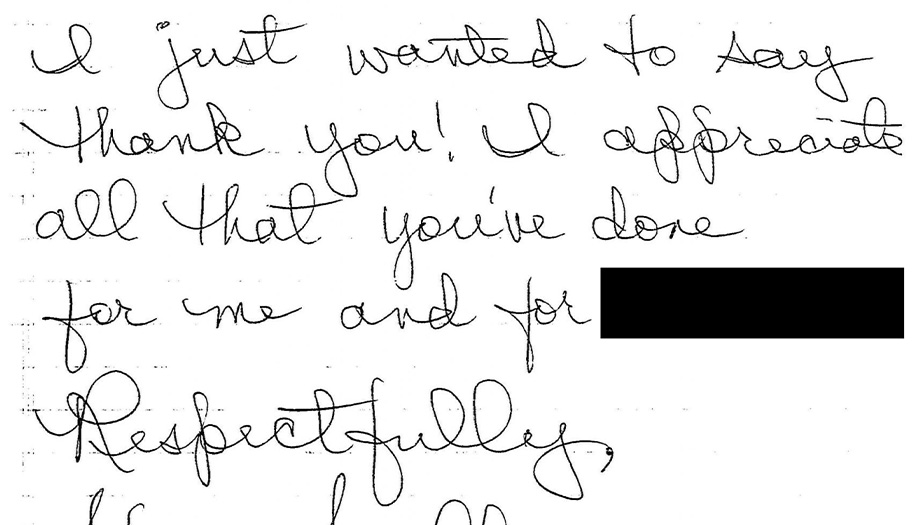 I just wanted to say
thank you! I appreciate
all that you've done
for me and for
Respectfully,